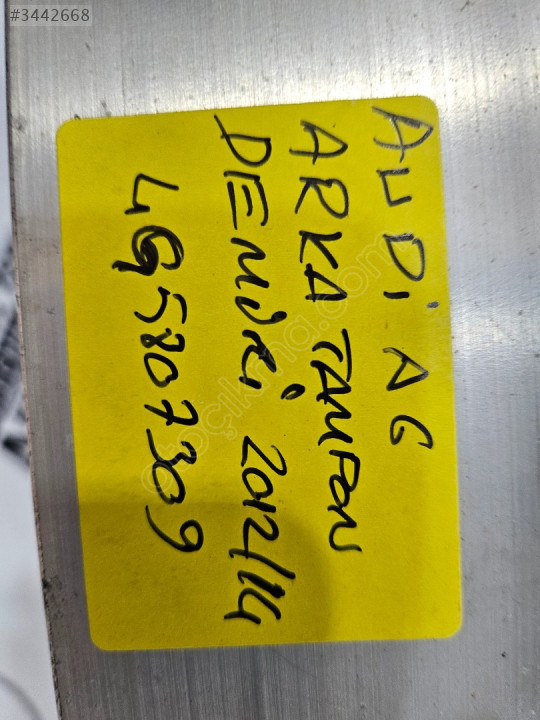 #3442668
AUDİ A6
ARKA TAMPON
DEMİRİ 2012/14
4G5807309